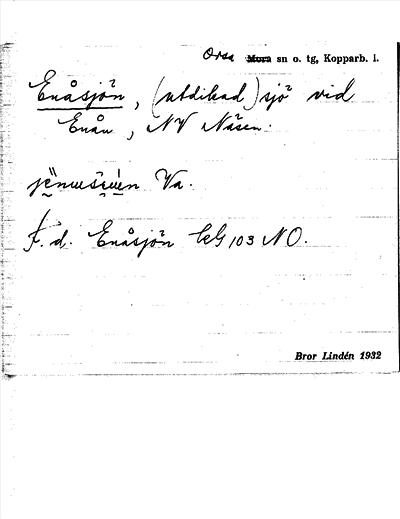 Orsa sn o. tg, Kopparb. l.
Enåsjön, (utdikad) sjö vid
Enån, NV Näsen.
Va.
F. d. Enåsjön GLG 103 NO.
Bror Lindén 1932